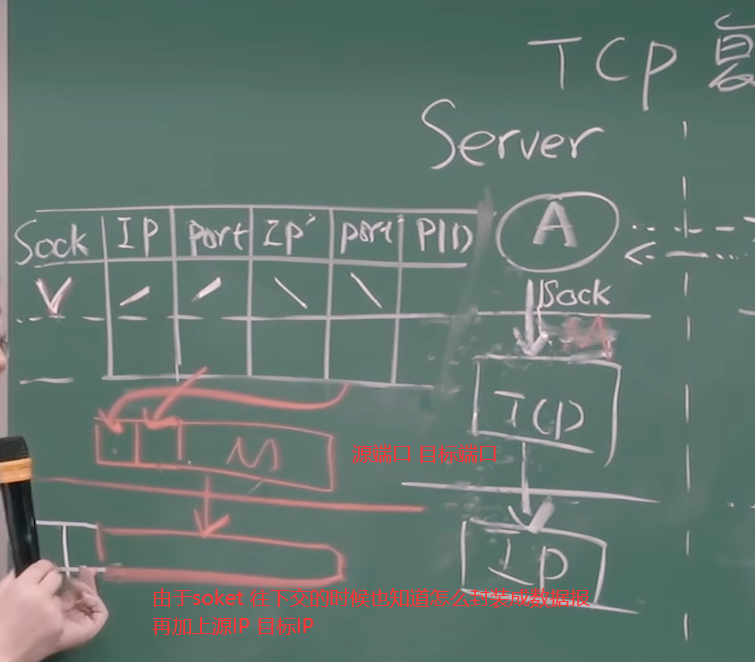 TCP 复
Server
Sock IP Port IP' port' PID
A
Sock
M
TCP
M
源端口 目标端口
IP
由于soket 往下交的时候也知道怎么封装成数据报
再加上源IP 目标IP